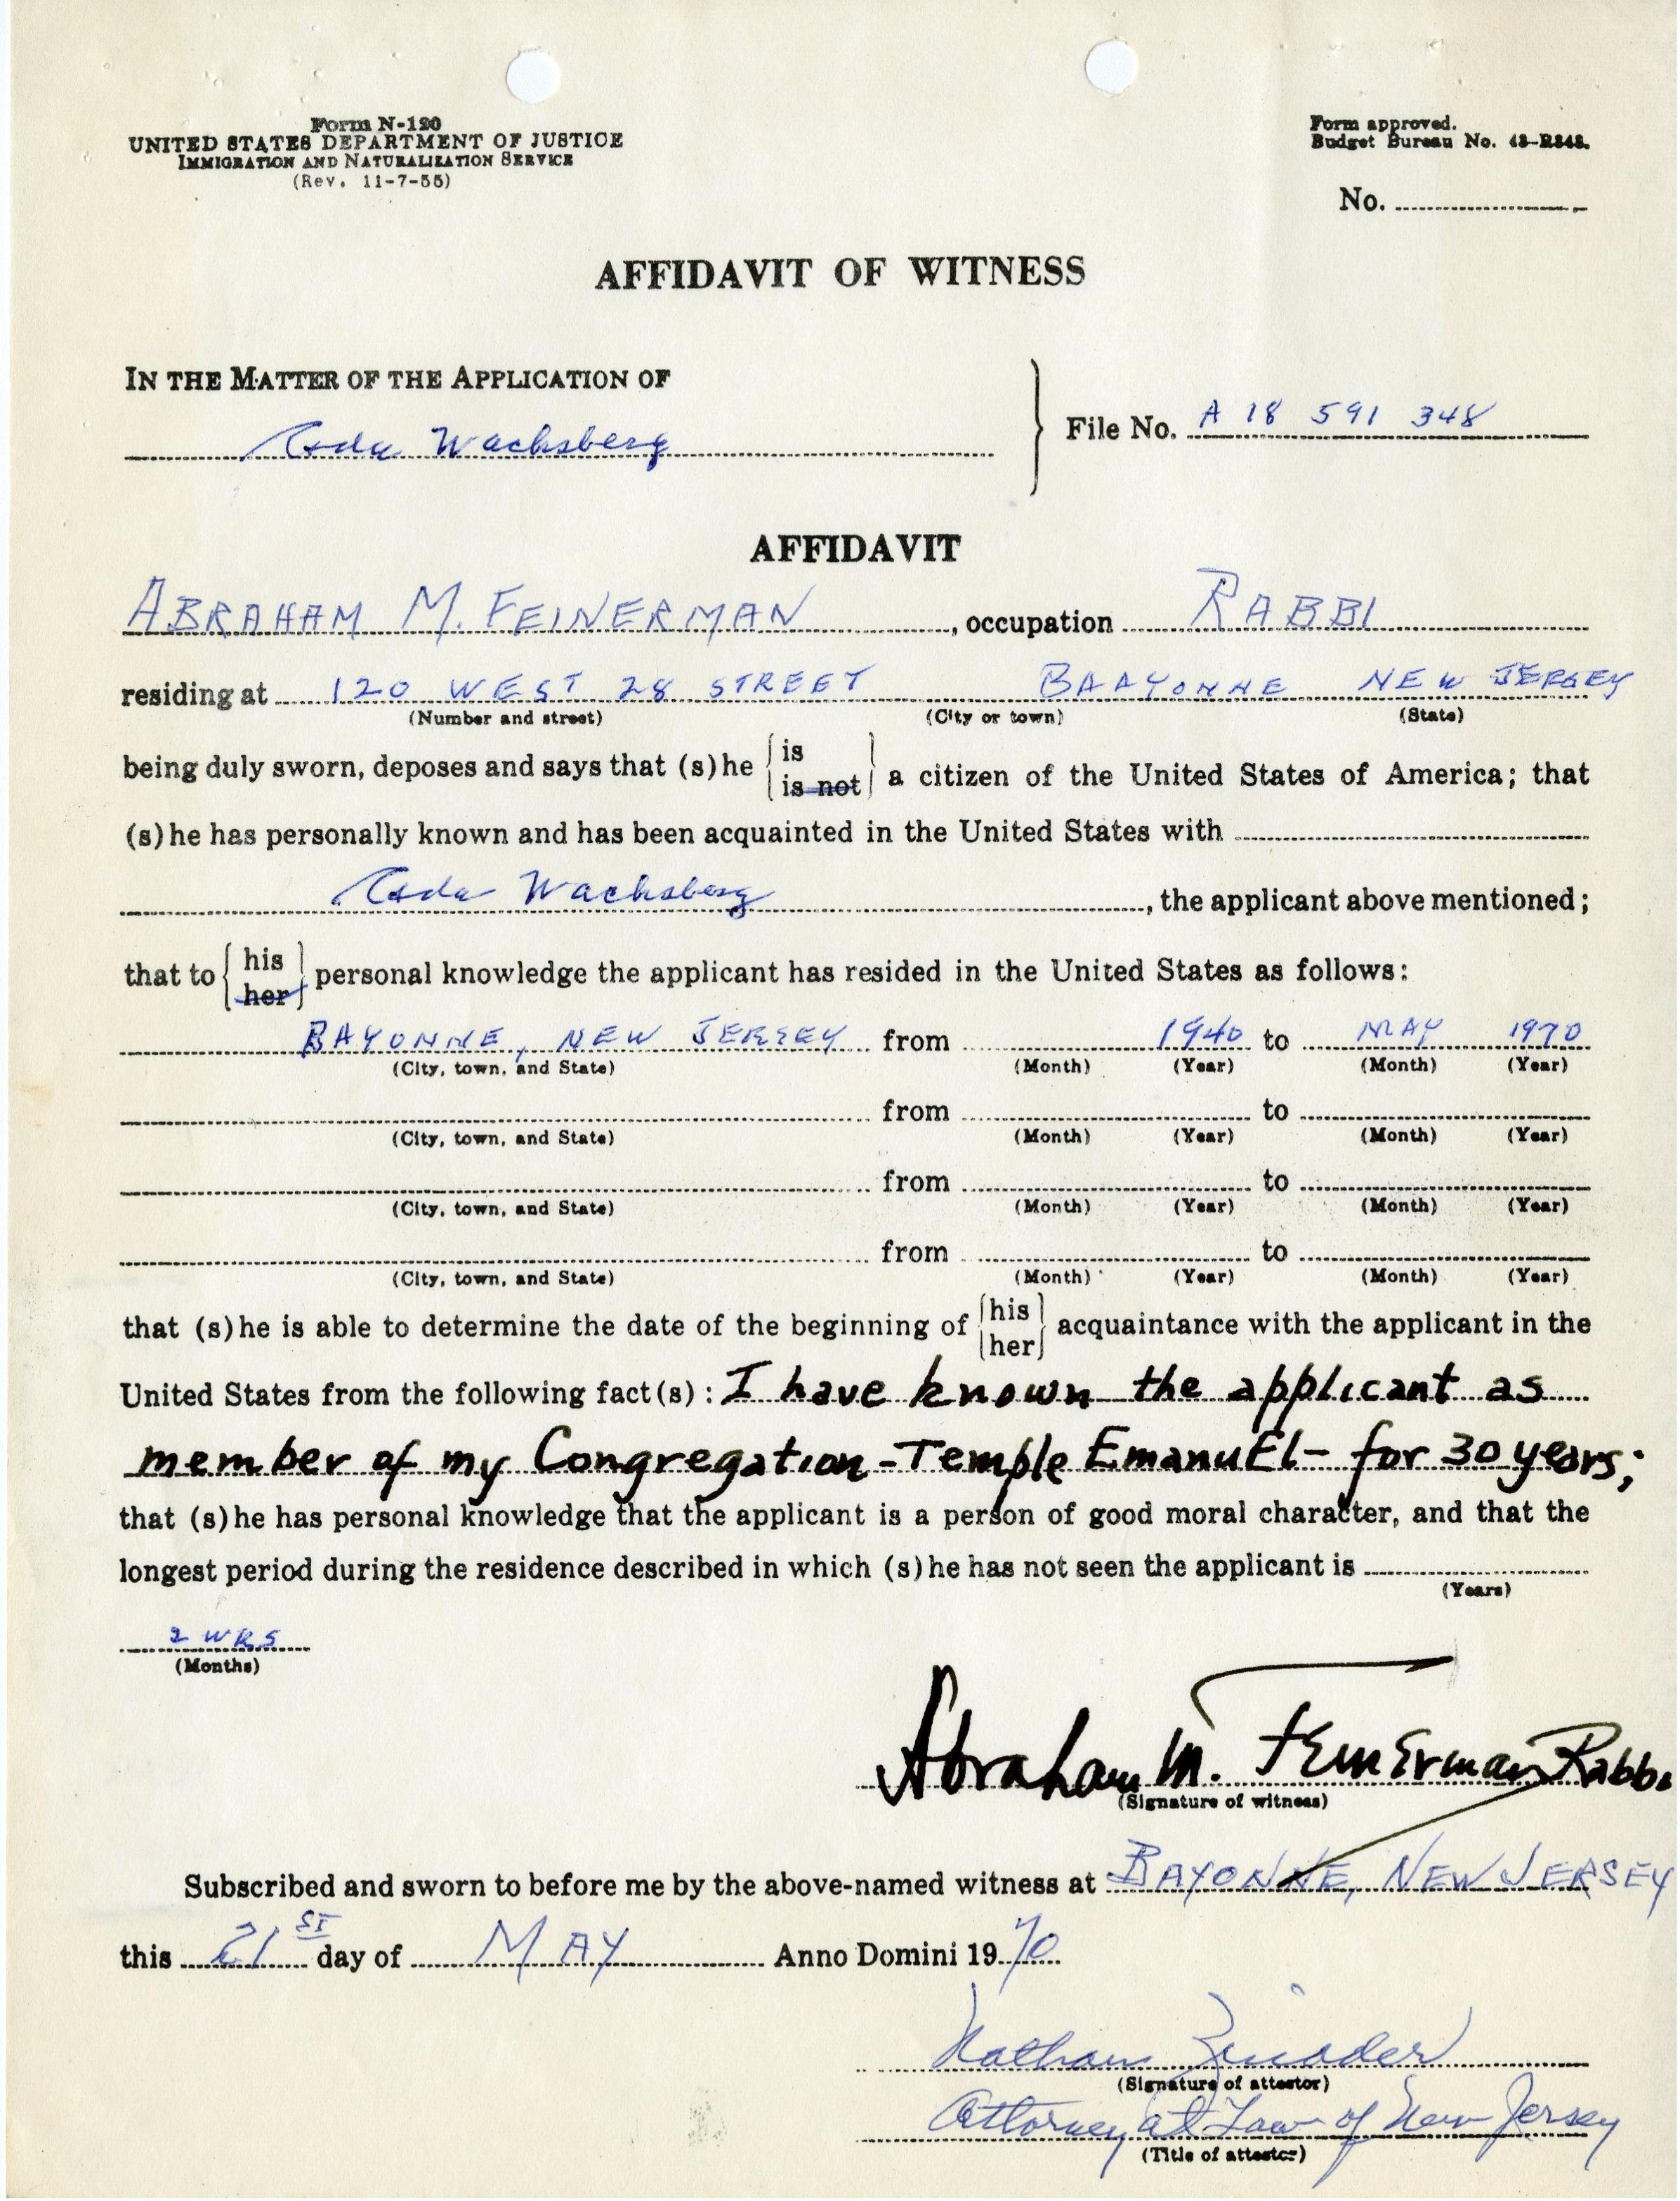 Form N-120
UNITED STATES DEPARTMENT OF JUSTICE
IMMIGRATION AND NATURALIZATION SERVICE
(Rev. 11-7-55)
Form approved.
Budget Bureau No. 43-R343.
No.
AFFIDAVIT OF WITNESS
IN THE MATTER OF THE APPLICATION OF
Wachsberg
File No. A 18 591 348
AFFIDAVIT
ABRAHAM M. FEINERMAN, occupation RABBI
residing at 120 WEST 28 STREET BAAYONNE NEW JERSEY
(Number and street) (City or town) (State)
being duly sworn, deposes and says that (s)he { is / is not } a citizen of the United States of America; that
(s)he has personally known and has been acquainted in the United States with
Wachsberg, the applicant above mentioned;
that to { his / her } personal knowledge the applicant has resided in the United States as follows:
BAYONNE, NEW JERSEY from 1940 to MAY 1970
(City, town, and State) (Month) (Year) (Month) (Year)
from to
(City, town, and State) (Month) (Year) (Month) (Year)
from to
(City, town, and State) (Month) (Year) (Month) (Year)
from to
(City, town, and State) (Month) (Year) (Month) (Year)
that (s)he is able to determine the date of the beginning of { his / her } acquaintance with the applicant in the
United States from the following fact(s): I have known the applicant as
member of my Congregation - Temple EmanuEl - for 30 years;
that (s)he has personal knowledge that the applicant is a person of good moral character, and that the
longest period during the residence described in which (s)he has not seen the applicant is
(Years)
2 WKS
(Months)
Abraham M. Feinerman Rabbi
(Signature of witness)
Subscribed and sworn to before me by the above-named witness at BAYONNE, NEW JERSEY
this 21ST day of MAY Anno Domini 1970
Nathan
(Signature of attestor)
Attorney at Law of New Jersey
(Title of attestor)